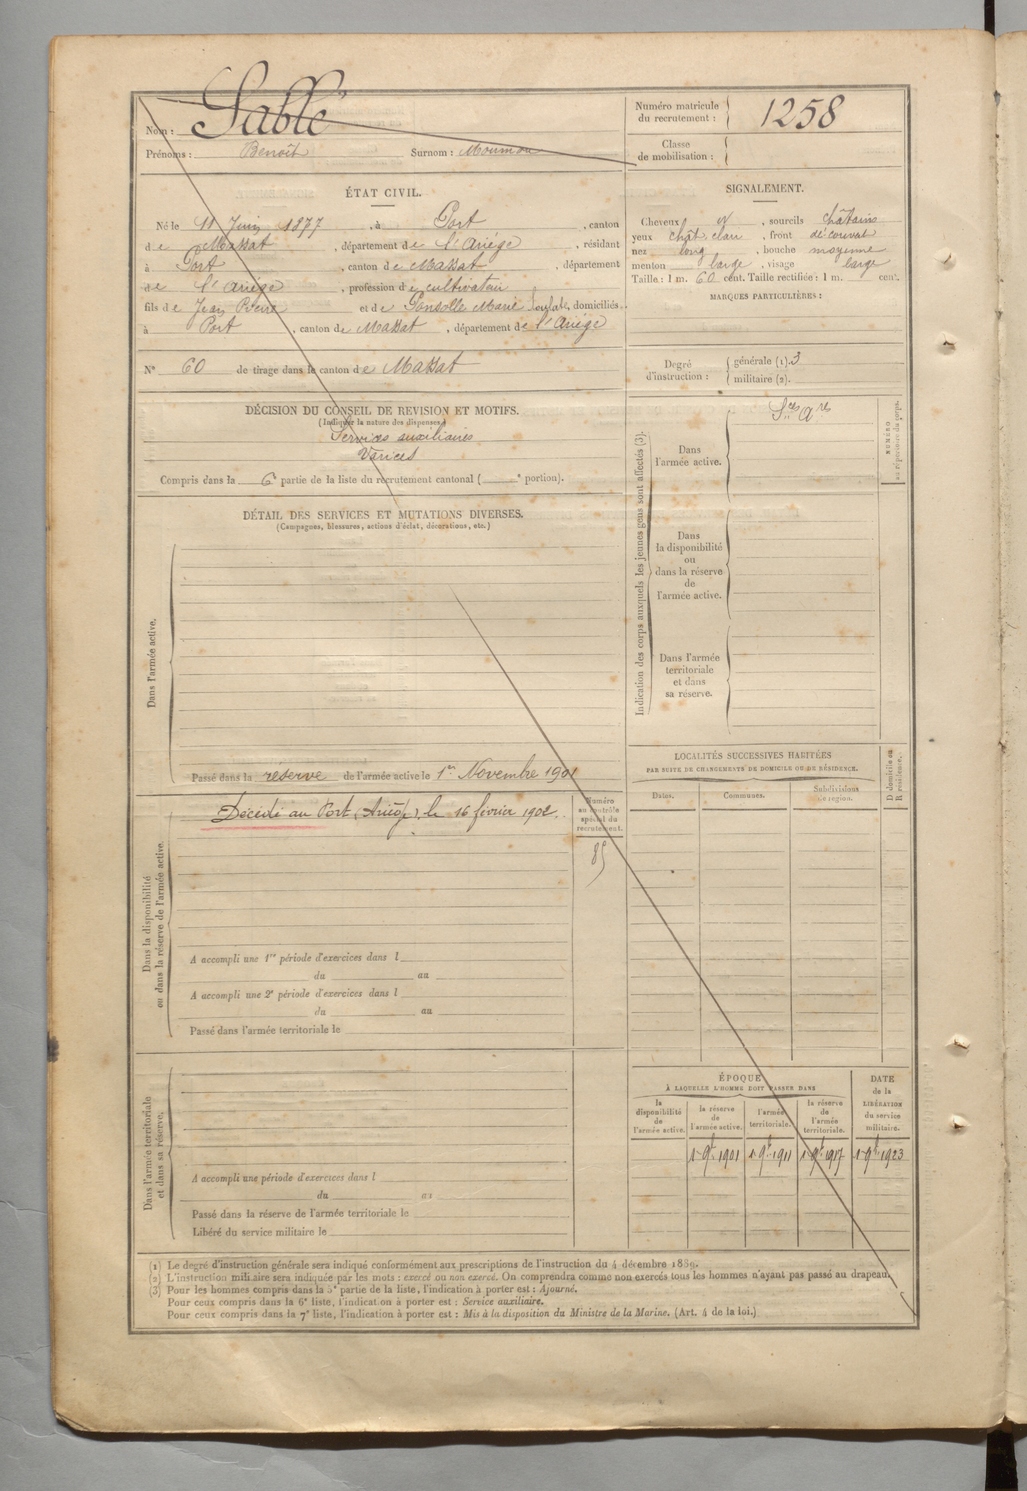 Nom : Sablé
Prénoms : Benoît Surnom : Moumou
Numéro matricule du recrutement : 1258
Classe de mobilisation :
ÉTAT CIVIL.
Né le 11 Juin 1877, à Port, canton
de Massat, département de l'Ariége, résidant
à Port, canton de Massat, département
de l'Ariége, profession de cultivateur
fils de Jean Pierre et de Ponsolle Marie, domiciliés
à Port, canton de Massat, département de l'Ariége
N° 60 de tirage dans le canton de Massat
SIGNALEMENT.
Cheveux et, sourcils châtains
yeux chât. clair, front découvert
nez long, bouche moyenne
menton large, visage large
Taille : 1 m. 60 cent. Taille rectifiée : 1 m. cent.
MARQUES PARTICULIÈRES :
Degré d'instruction : générale (1). 3
militaire (2).
DÉCISION DU CONSEIL DE REVISION ET MOTIFS.
(Indiquer la nature des dispenses.)
Services auxiliaires
Varices
Compris dans la 6e partie de la liste du recrutement cantonal ( e portion).
DÉTAIL DES SERVICES ET MUTATIONS DIVERSES.
(Campagnes, blessures, actions d'éclat, décorations, etc.)
Dans l'armée active.
Passé dans la réserve de l'armée active le 1er Novembre 1901
Dans la disponibilité
ou dans la réserve de l'armée active.
Décédé au Port (Ariège), le 16 février 1902.
Numéro
au contrôle
spécial du
recrutement.
85
A accompli une 1re période d'exercices dans l
du au
A accompli une 2e période d'exercices dans l
du au
Passé dans l'armée territoriale le
Dans l'armée territoriale
et dans sa réserve.
A accompli une période d'exercices dans l
du au
Passé dans la réserve de l'armée territoriale le
Libéré du service militaire le
Indication des corps auxquels les jeunes gens sont affectés (3).
Dans
l'armée active.
Sces Ares
NUMÉRO
au répertoire du corps.
Dans
la disponibilité
ou
dans la réserve
de
l'armée active.
Dans l'armée
territoriale
et dans
sa réserve.
LOCALITÉS SUCCESSIVES HABITÉES
PAR SUITE DE CHANGEMENTS DE DOMICILE OU DE RÉSIDENCE.
Dates. Communes. Subdivisions de région.
D domicile ou
R résidence.
ÉPOQUE
À LAQUELLE L'HOMME DOIT PASSER DANS
la disponibilité de l'armée active.
la réserve de l'armée active.
l'armée territoriale.
la réserve de l'armée territoriale.
DATE de la LIBÉRATION du service militaire.
1 9bre 1901 1 9bre 1911 1 9bre 1917 1 9bre 1923
(1) Le degré d'instruction générale sera indiqué conformément aux prescriptions de l'instruction du 4 décembre 1889.
(2) L'instruction militaire sera indiquée par les mots : exercé ou non exercé. On comprendra comme non exercés tous les hommes n'ayant pas passé au drapeau.
(3) Pour les hommes compris dans la 5e partie de la liste, l'indication à porter est : Ajourné.
Pour ceux compris dans la 6e liste, l'indication à porter est : Service auxiliaire.
Pour ceux compris dans la 7e liste, l'indication à porter est : Mis à la disposition du Ministre de la Marine. (Art. 4 de la loi.)